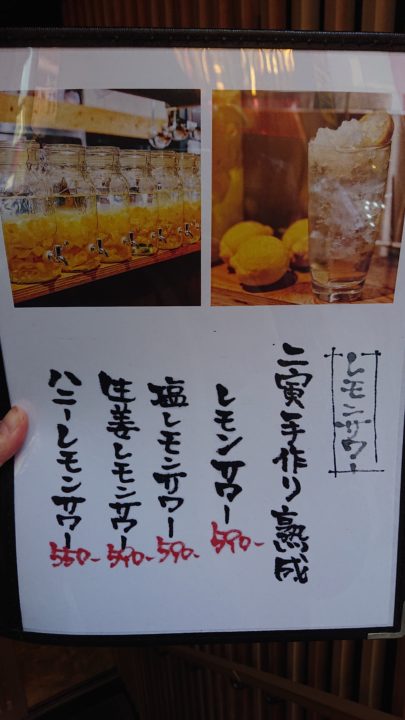 レモンサワー
二寅手作り熟成
レモンサワー 590-
塩レモンサワー 590-
生姜レモンサワー 590-
ハニーレモンサワー 550-